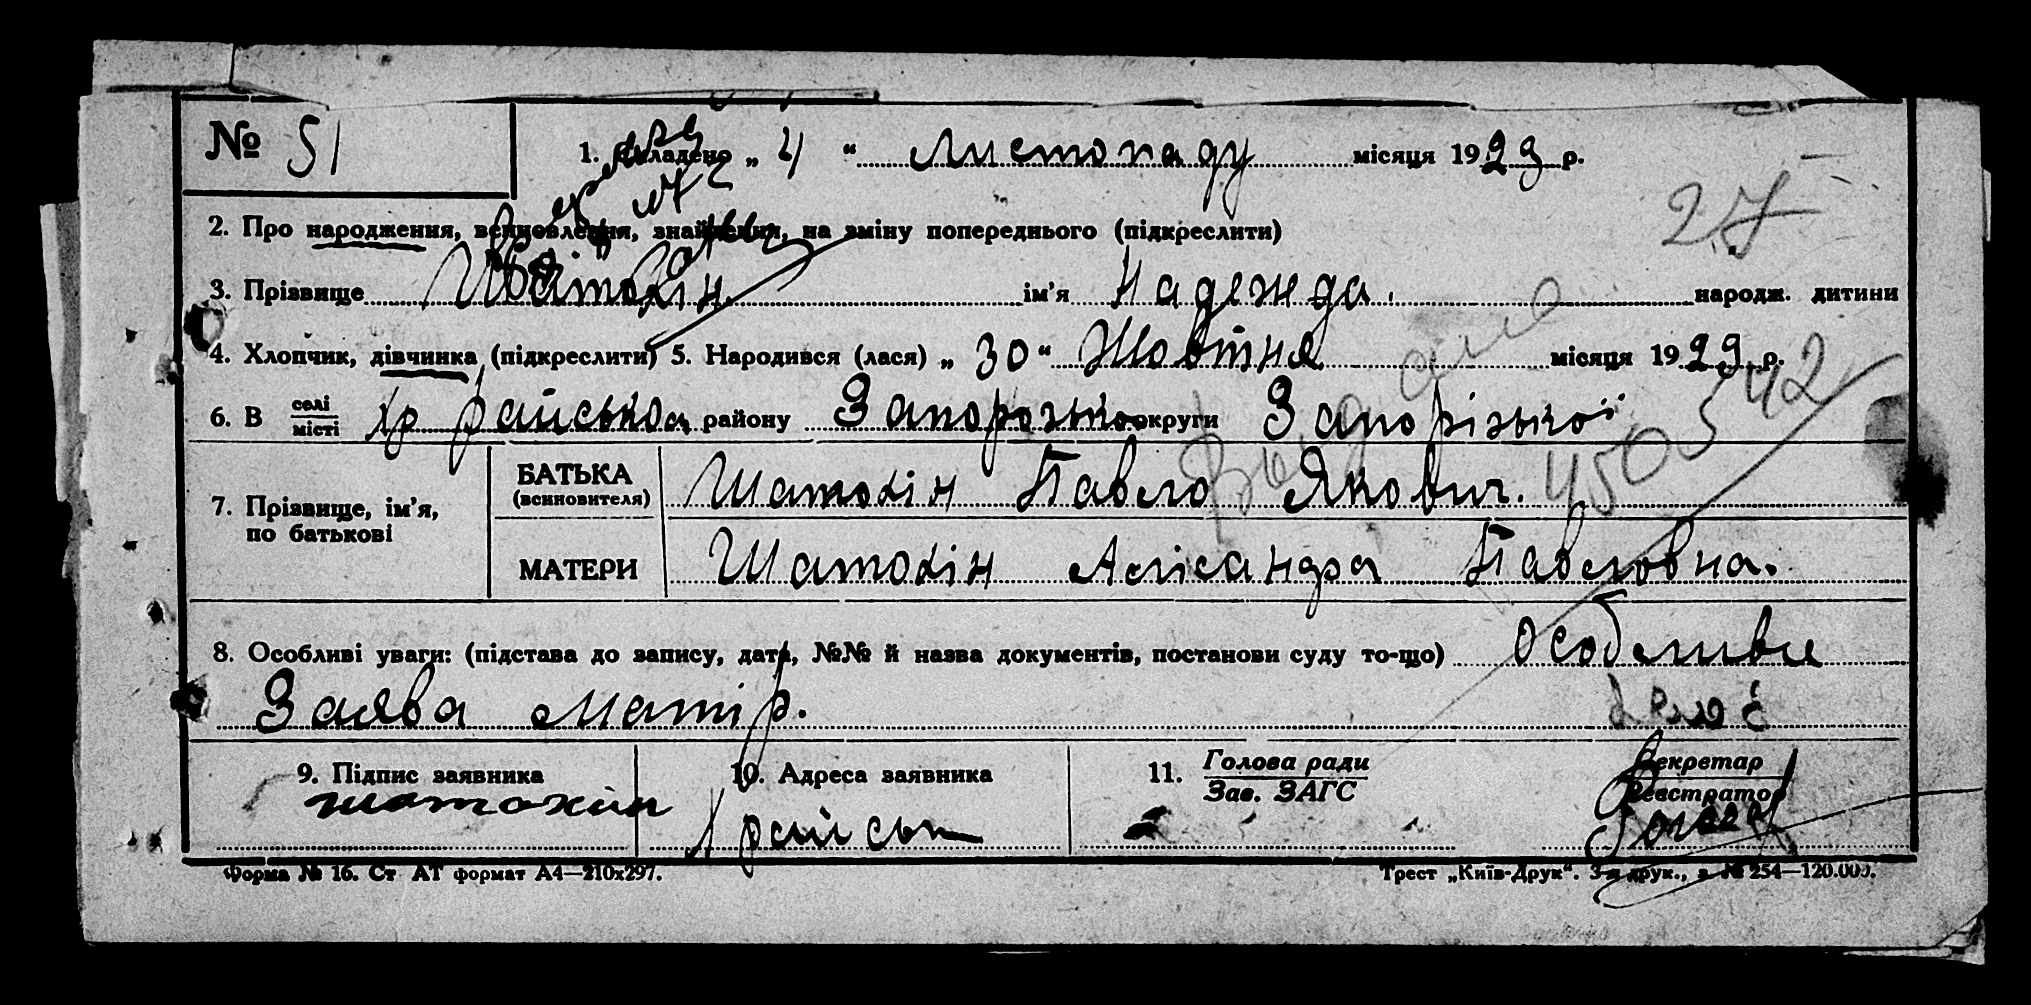 № 51
1. Складено „ 4 “ листопаду місяця 1929 р.
27
2. Про народження, всиновлення, знайдення, на зміну попереднього (підкреслити)
3. Прізвище Шатохін ім’я Надежда народж. дитини
4. Хлопчик, дівчинка (підкреслити) 5. Народився (лася) „ 30 “ Жовтня місяця 1929 р.
6. В селі місті хр райська району Запорозько округи Запорізької
7. Прізвище, ім’я, по батькові
БАТЬКА (всиновителя) Шатохін Павело Якович.
МАТЕРИ Шатохін Алісандра Павеловна.
8. Особливі уваги: (підстава до запису, дата, №№ й назва документів, постанови суду то-що) Особливи
Заява матір.
9. Підпис заявника
шатохин
10. Адреса заявника
11. Голова ради Зав. ЗАГС
Секретар Реєстратор
Форма № 16. Ст АТ формат А4—210х297.
Трест „Київ-Друк“. 3-я друк., з. № 254—120.000.